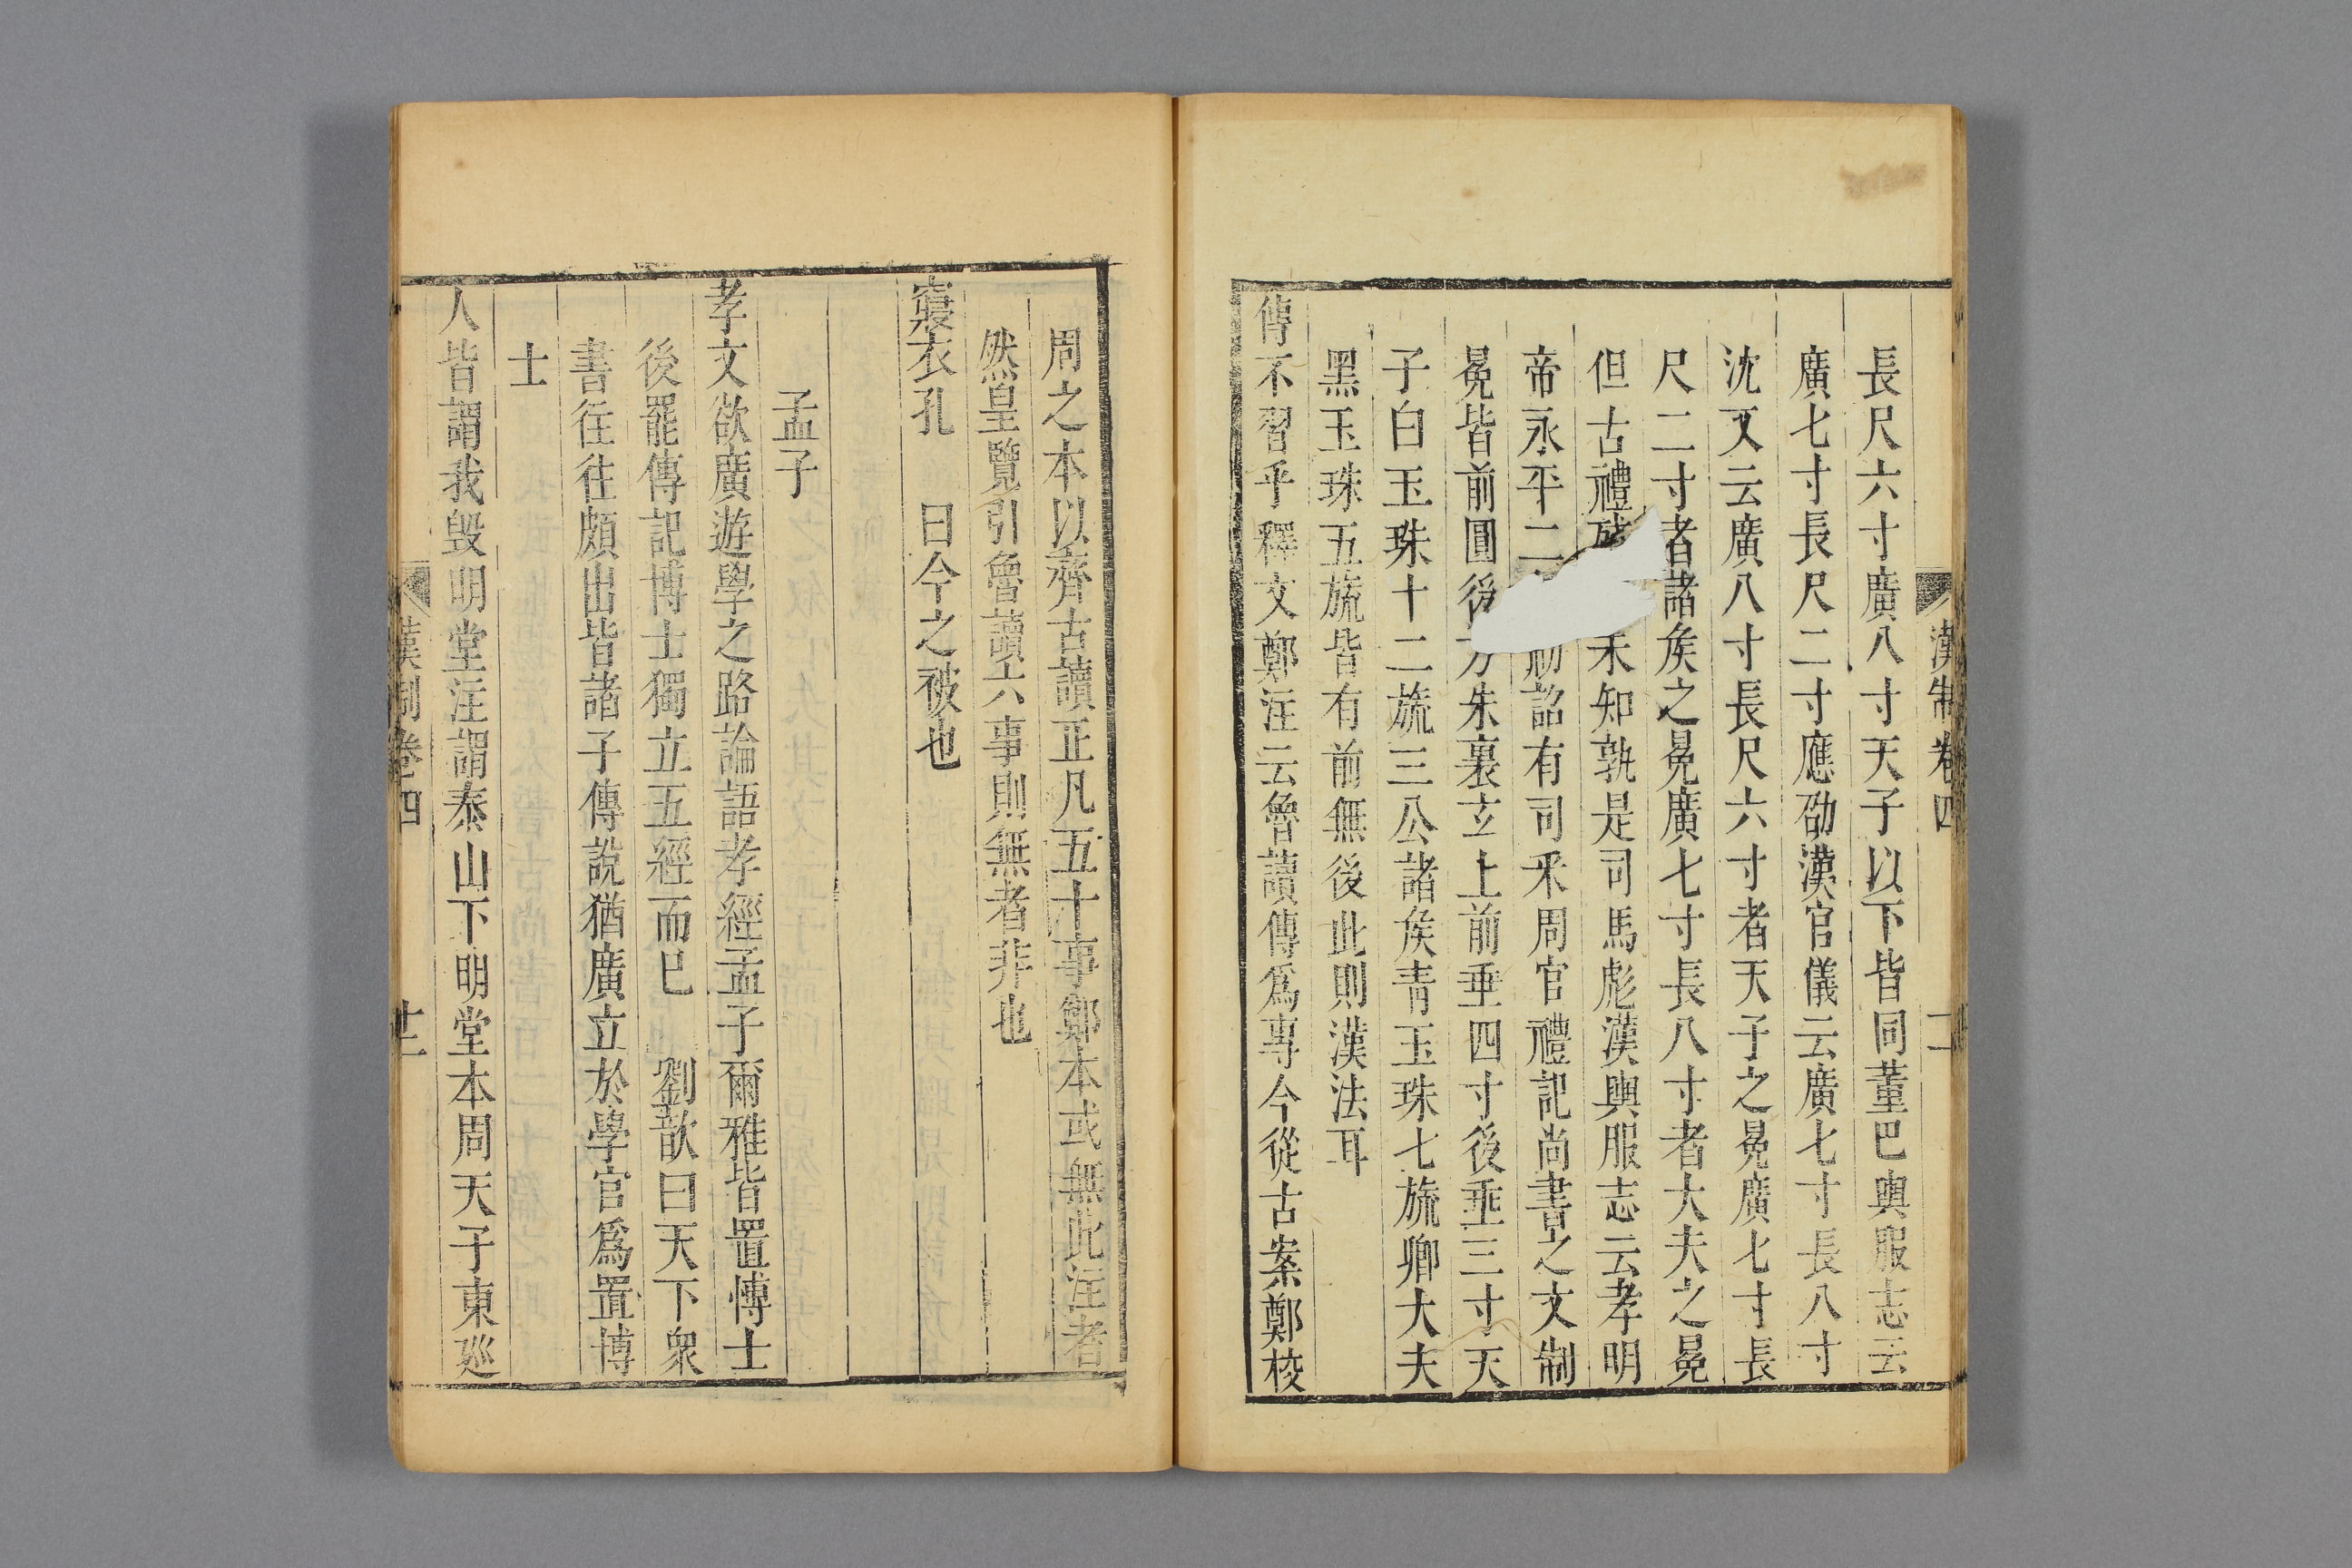 漢制卷四
長尺六寸廣八寸天子以下皆同董巴輿服志云
廣七寸長尺二寸應劭漢官儀云廣七寸長八寸
沈又云廣八寸長尺六寸者天子之冕廣七寸長
尺二寸者諸矦之冕廣七寸長八寸者大夫之冕
但古禮未知孰是司馬彪漢輿服志云孝明
帝永平二初詔有司采周官禮記尚書之文制
冕皆前圓後方朱裏玄上前垂四寸後垂三寸天
子白玉珠十二旒三公諸矦青玉珠七旒卿大夫
黑玉珠五旒皆有前無後此則漢法耳
傳不習乎釋文鄭注云魯讀傳爲專今從古案鄭校
周之本以齊古讀正凡五十事鄭本或無此注者
然皇覽引魯讀六事則無者非也
寢衣孔 曰今之被也
孟子
孝文欲廣遊學之路論語孝經孟子爾雅皆置博士
後罷傳記博士獨立五經而已 劉歆曰天下衆
書往往頗出皆諸子傳說猶廣立於學官爲置博
士
人皆謂我毀明堂注謂泰山下明堂本周天子東廵
漢制卷四